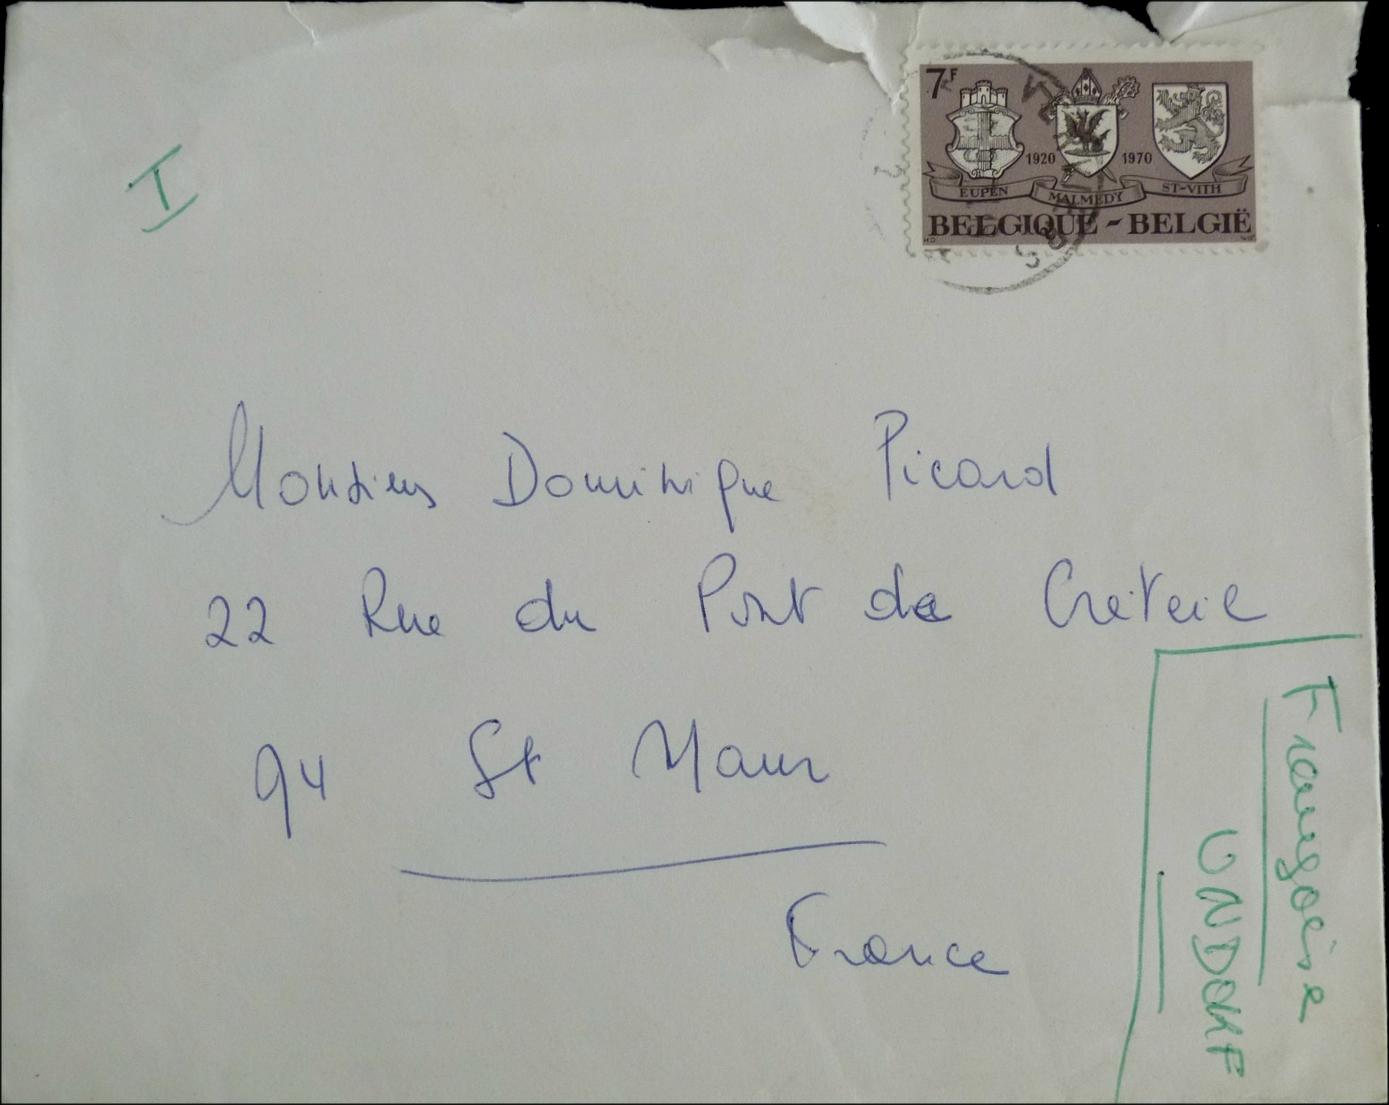 I
7F
1920 1970
EUPEN MALMEDY ST-VITH
BELGIQUE - BELGIË
Monsieur Dominique Picard
22 Rue du Pont de Créteil
94 St Maur
France
Françoise
UNDORF